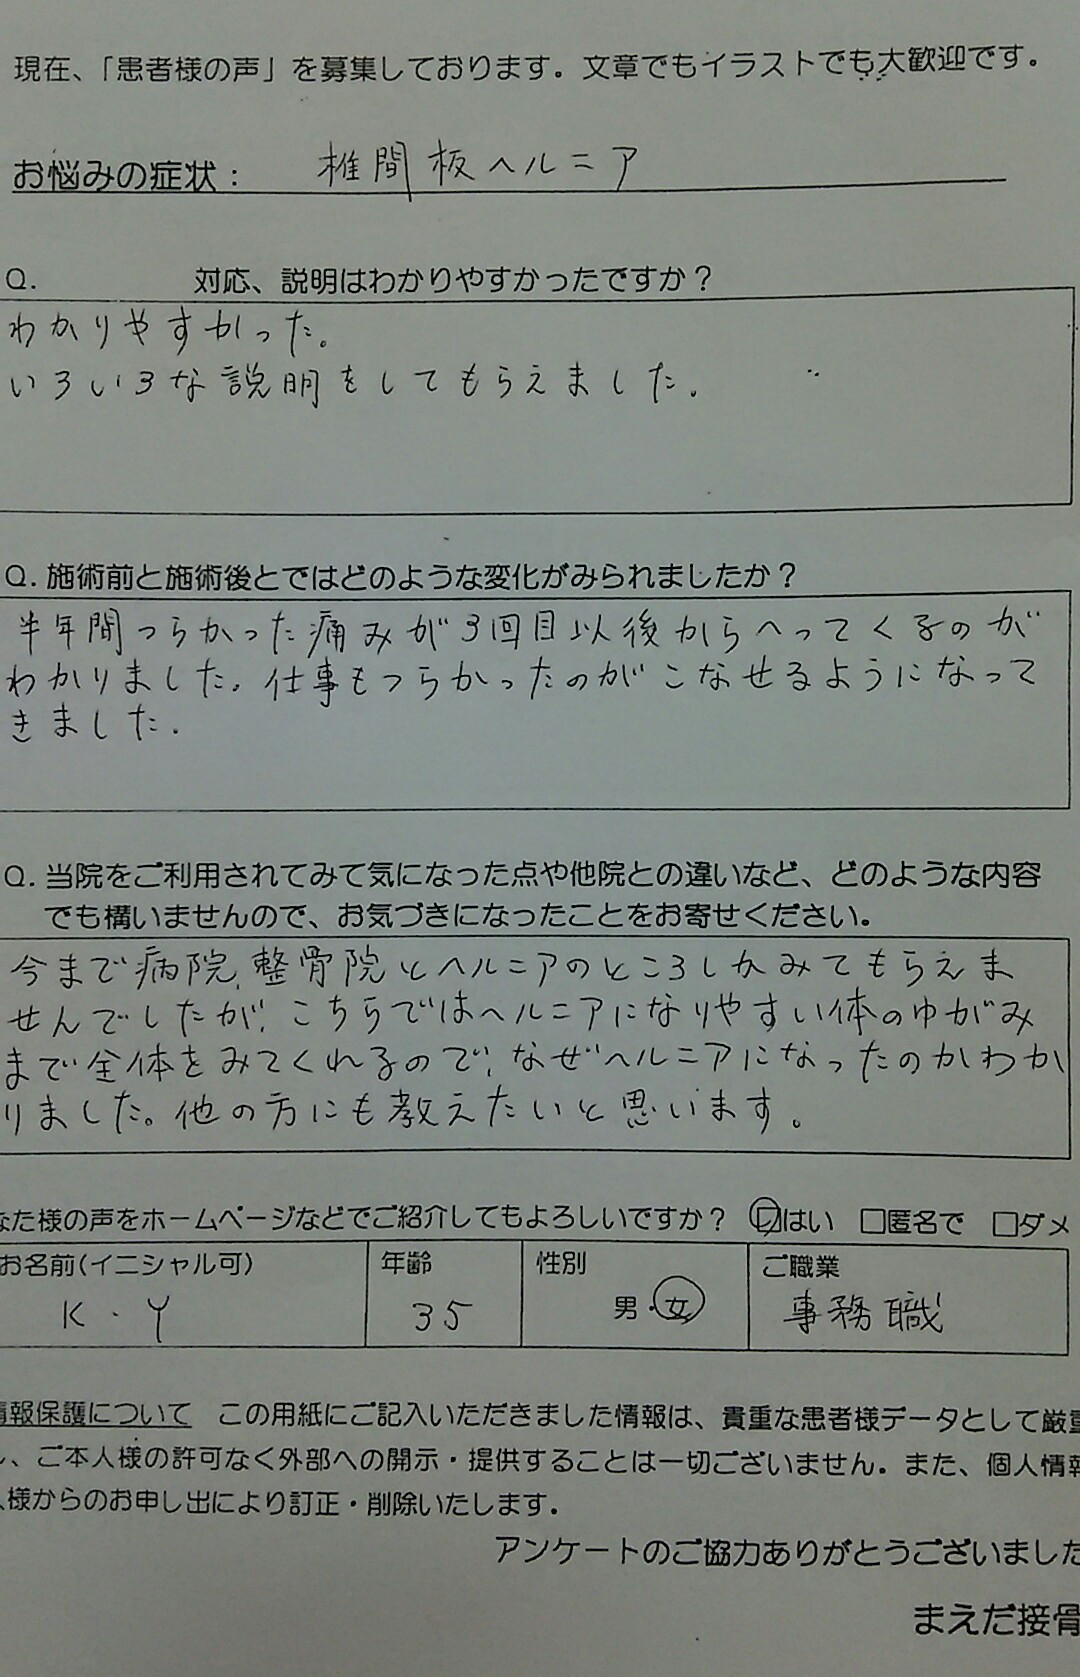 現在、「患者様の声」を募集しております。文章でもイラストでも大歓迎です。
お悩みの症状： 椎間板ヘルニア
Q. 対応、説明はわかりやすかったですか？
わかりやすかった。
いろいろな説明をしてもらえました。
Q. 施術前と施術後とではどのような変化がみられましたか？
半年間つらかった痛みが3回目以後からへってくるのが
わかりました。仕事もつらかったのがこなせるようになって
きました。
Q. 当院をご利用されてみて気になった点や他院との違いなど、どのような内容
でも構いませんので、お気づきになったことをお寄せください。
今まで病院、整骨院とヘルニアのところしかみてもらえま
せんでしたが、こちらではヘルニアになりやすい体のゆがみ
まで全体をみてくれるので、なぜヘルニアになったのかわか
りました。他の方にも教えたいと思います。
なた様の声をホームページなどでご紹介してもよろしいですか？ ☑はい □匿名で □ダメ
お名前(イニシャル可) 年齢 性別 ご職業
K・Y 35 男・女 事務職
情報保護について この用紙にご記入いただきました情報は、貴重な患者様データとして厳重
し、ご本人様の許可なく外部への開示・提供することは一切ございません。また、個人情報
人様からのお申し出により訂正・削除いたします。
アンケートのご協力ありがとうございました
まえだ接骨